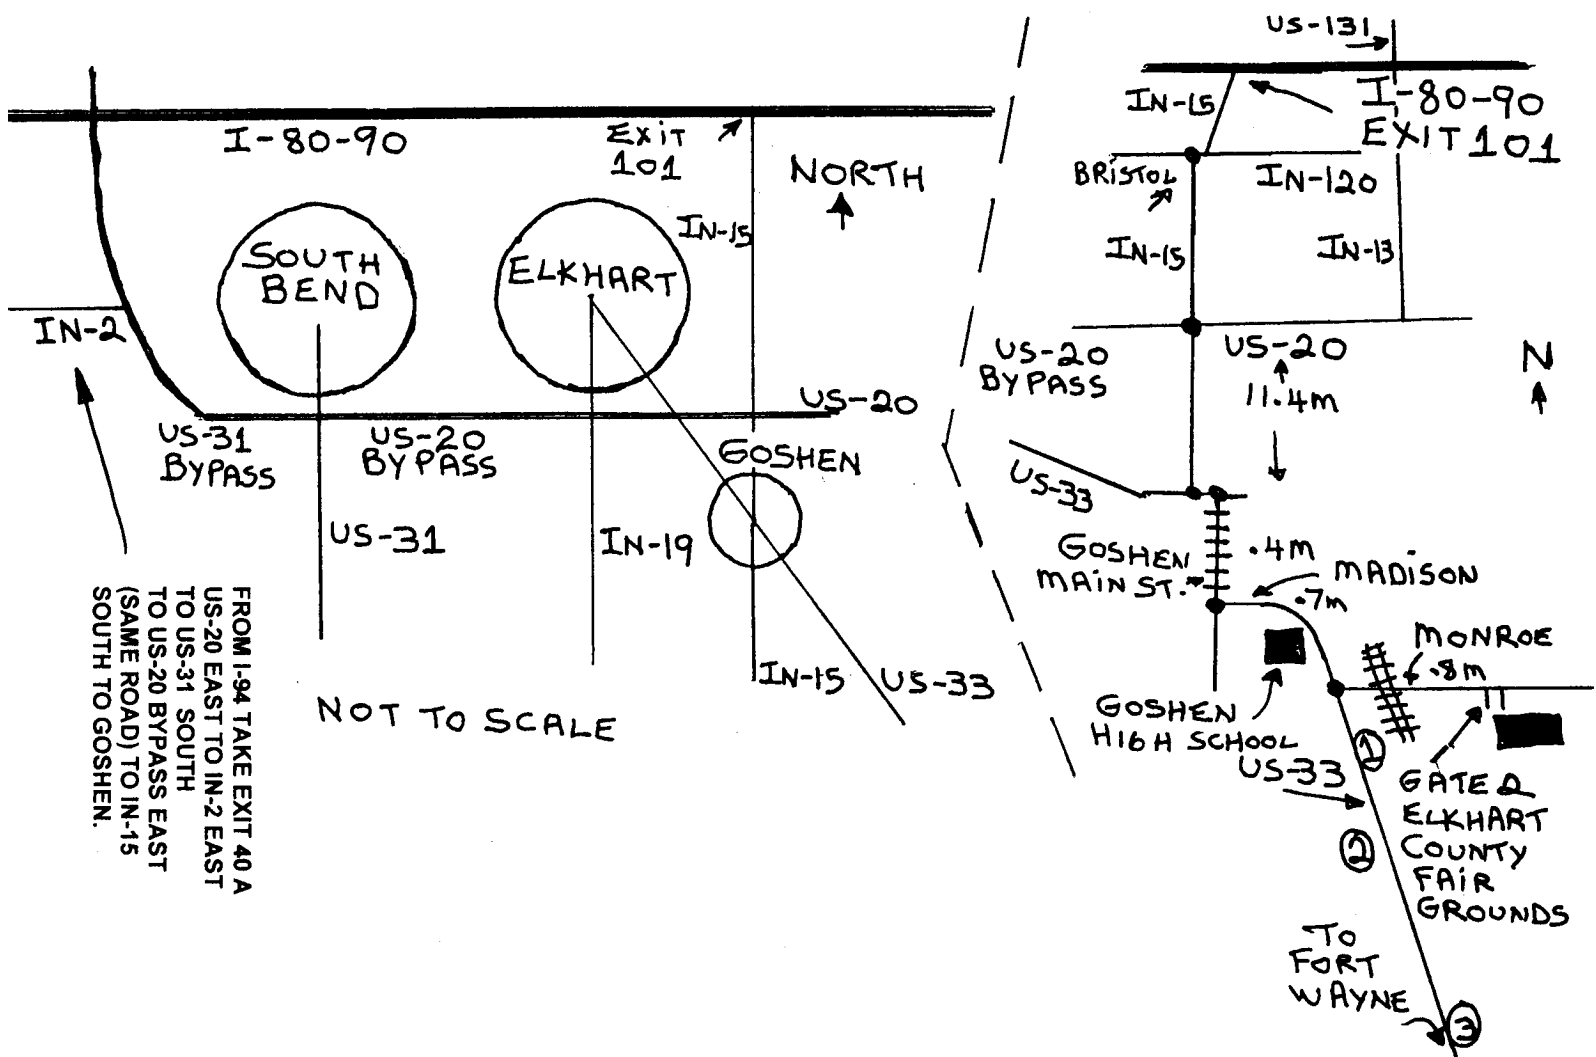 I-80-90
EXIT
101
NORTH
IN-15
SOUTH
BEND
ELKHART
IN-2
US-20
US-31
BYPASS
US-20
BYPASS
GOSHEN
US-31
IN-19
IN-15
US-33
NOT TO SCALE
FROM I-94 TAKE EXIT 40 A
US-20 EAST TO IN-2 EAST
TO US-31 SOUTH
TO US-20 BYPASS EAST
(SAME ROAD) TO IN-15
SOUTH TO GOSHEN.
US-131
IN-15
I-80-90
EXIT 101
BRISTOL
IN-120
IN-15
IN-13
US-20
BYPASS
US-20
11.4m
N
US-33
GOSHEN
MAIN ST.
.4m
MADISON
.7m
MONROE
.8m
GOSHEN
HIGH SCHOOL
US-33
1
GATE 2
ELKHART
COUNTY
FAIR
GROUNDS
2
TO
FORT
WAYNE
3